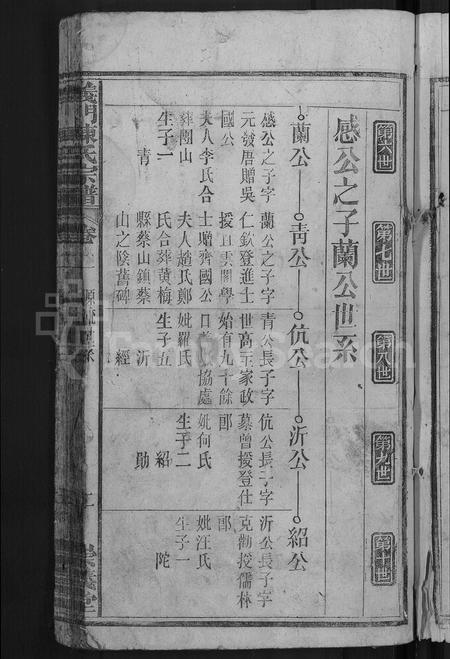 第六世 第七世 第八世 第九世 第世
感公之子蘭公世系
蘭公 靑公 伉公 沂公 紹公
感公之子字
元發唐贈吳
國公
夫人李氏合
葬圉山
生子一
靑
蘭公之子字
仁欽登進士
援直雲閣學
士贈齊國公
夫人趙氏鄭
氏合葬黄梅
縣蔡山鎮蔡
山之陰舊碑
靑公長子字
世高主家政
始有九十餘
口 協處
妣羅氏
生子五
沂
經
伉公長子字
慕曾授登仕
郎
妣何氏
生子二
紹
勛
沂公長子字
克勤授儒林
郎
妣汪氏
生子一
陀
義門陳氏宗譜 卷